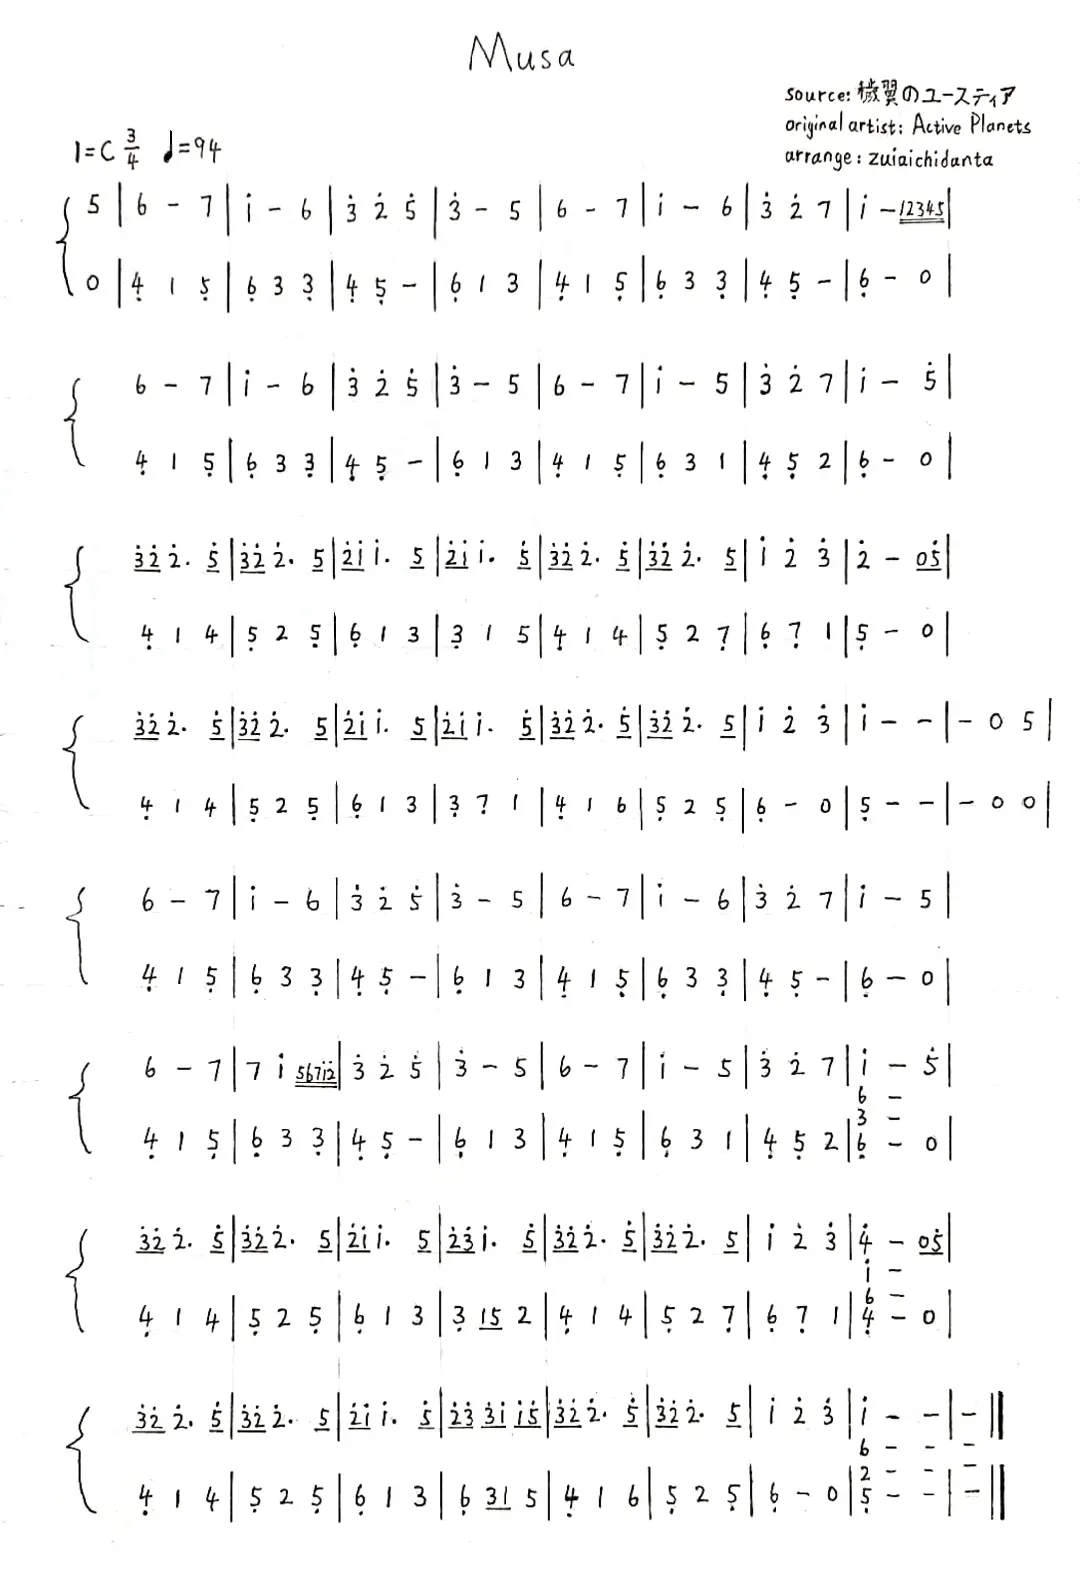 Musa
source: 穢翼のユースティア
original artist: Active Planets
arrange: zuiaichidanta
1=C 3/4 ♩=94
5 | 6 - 7 | i̇ - 6 | 3̇ 2̇ 5̇ | 3̇ - 5 | 6 - 7 | i̇ - 6 | 3̇ 2̇ 7 | i̇ - 12345 |
0 | 4̣ 1 5̣ | 6̣ 3 3̣ | 4̣ 5̣ - | 6̣ 1 3 | 4̣ 1 5̣ | 6̣ 3 3̣ | 4̣ 5̣ - | 6̣ - 0 |
6 - 7 | i̇ - 6 | 3̇ 2̇ 5̇ | 3̇ - 5 | 6 - 7 | i̇ - 5 | 3̇ 2̇ 7 | i̇ - 5̇ |
4̣ 1 5̣ | 6̣ 3 3̣ | 4̣ 5̣ - | 6̣ 1 3 | 4̣ 1 5̣ | 6̣ 3 1 | 4̣ 5̣ 2 | 6̣ - 0 |
3̇2̇ 2̇. 5̇ | 3̇2̇ 2̇. 5 | 2̇i̇ i̇. 5 | 2̇i̇ i̇. 5̇ | 3̇2̇ 2̇. 5̇ | 3̇2̇ 2̇. 5 | i̇ 2̇ 3̇ | 2̇ - 05̇ |
4̣ 1 4 | 5̣ 2 5̣ | 6̣ 1 3 | 3̣ 1 5 | 4̣ 1 4 | 5̣ 2 7̣ | 6̣ 7̣ 1 | 5̣ - 0 |
3̇2̇ 2̇. 5̇ | 3̇2̇ 2̇. 5 | 2̇i̇ i̇. 5 | 2̇i̇ i̇. 5̇ | 3̇2̇ 2̇. 5̇ | 3̇2̇ 2̇. 5 | i̇ 2̇ 3̇ | i̇ - - | - 0 5 |
4̣ 1 4 | 5̣ 2 5̣ | 6̣ 1 3 | 3̣ 7̣ 1 | 4̣ 1 6 | 5̣ 2 5̣ | 6̣ - 0 | 5̣ - - | - 0 0 |
6 - 7 | i̇ - 6 | 3̇ 2̇ 5̇ | 3̇ - 5 | 6 - 7 | i̇ - 6 | 3̇ 2̇ 7 | i̇ - 5 |
4̣ 1 5̣ | 6̣ 3 3̣ | 4̣ 5̣ - | 6̣ 1 3 | 4̣ 1 5̣ | 6̣ 3 3̣ | 4̣ 5̣ - | 6̣ - 0 |
6 - 7 | 7 i̇ 567i̇2̇ | 3̇ 2̇ 5̇ | 3̇ - 5 | 6 - 7 | i̇ - 5 | 3̇ 2̇ 7 | i̇ - 5̇ |
6 -
3 -
4̣ 1 5̣ | 6̣ 3 3̣ | 4̣ 5̣ - | 6̣ 1 3 | 4̣ 1 5̣ | 6̣ 3 1 | 4̣ 5̣ 2 | 6̣ - 0 |
3̇2̇ 2̇. 5̇ | 3̇2̇ 2̇. 5 | 2̇i̇ i̇. 5 | 2̇3̇ i̇. 5̇ | 3̇2̇ 2̇. 5̇ | 3̇2̇ 2̇. 5 | i̇ 2̇ 3̇ | 4̇ - 05̇ |
i̇ -
6 -
4̣ 1 4 | 5̣ 2 5̣ | 6̣ 1 3 | 3̣ 15 2 | 4̣ 1 4 | 5̣ 2 7̣ | 6̣ 7̣ 1 | 4̣ - 0 |
3̇2̇ 2̇. 5̇ | 3̇2̇ 2̇. 5 | 2̇i̇ i̇. 5̇ | 2̇3̇ 3̇i̇ i̇5̇ | 3̇2̇ 2̇. 5̇ | 3̇2̇ 2̇. 5 | i̇ 2̇ 3̇ | i̇ - - | - ||
6 - - -
2 - - -
4̣ 1 4 | 5̣ 2 5̣ | 6̣ 1 3 | 6̣ 31 5 | 4̣ 1 6 | 5̣ 2 5̣ | 6̣ - 0 | 5̣ - - | - ||